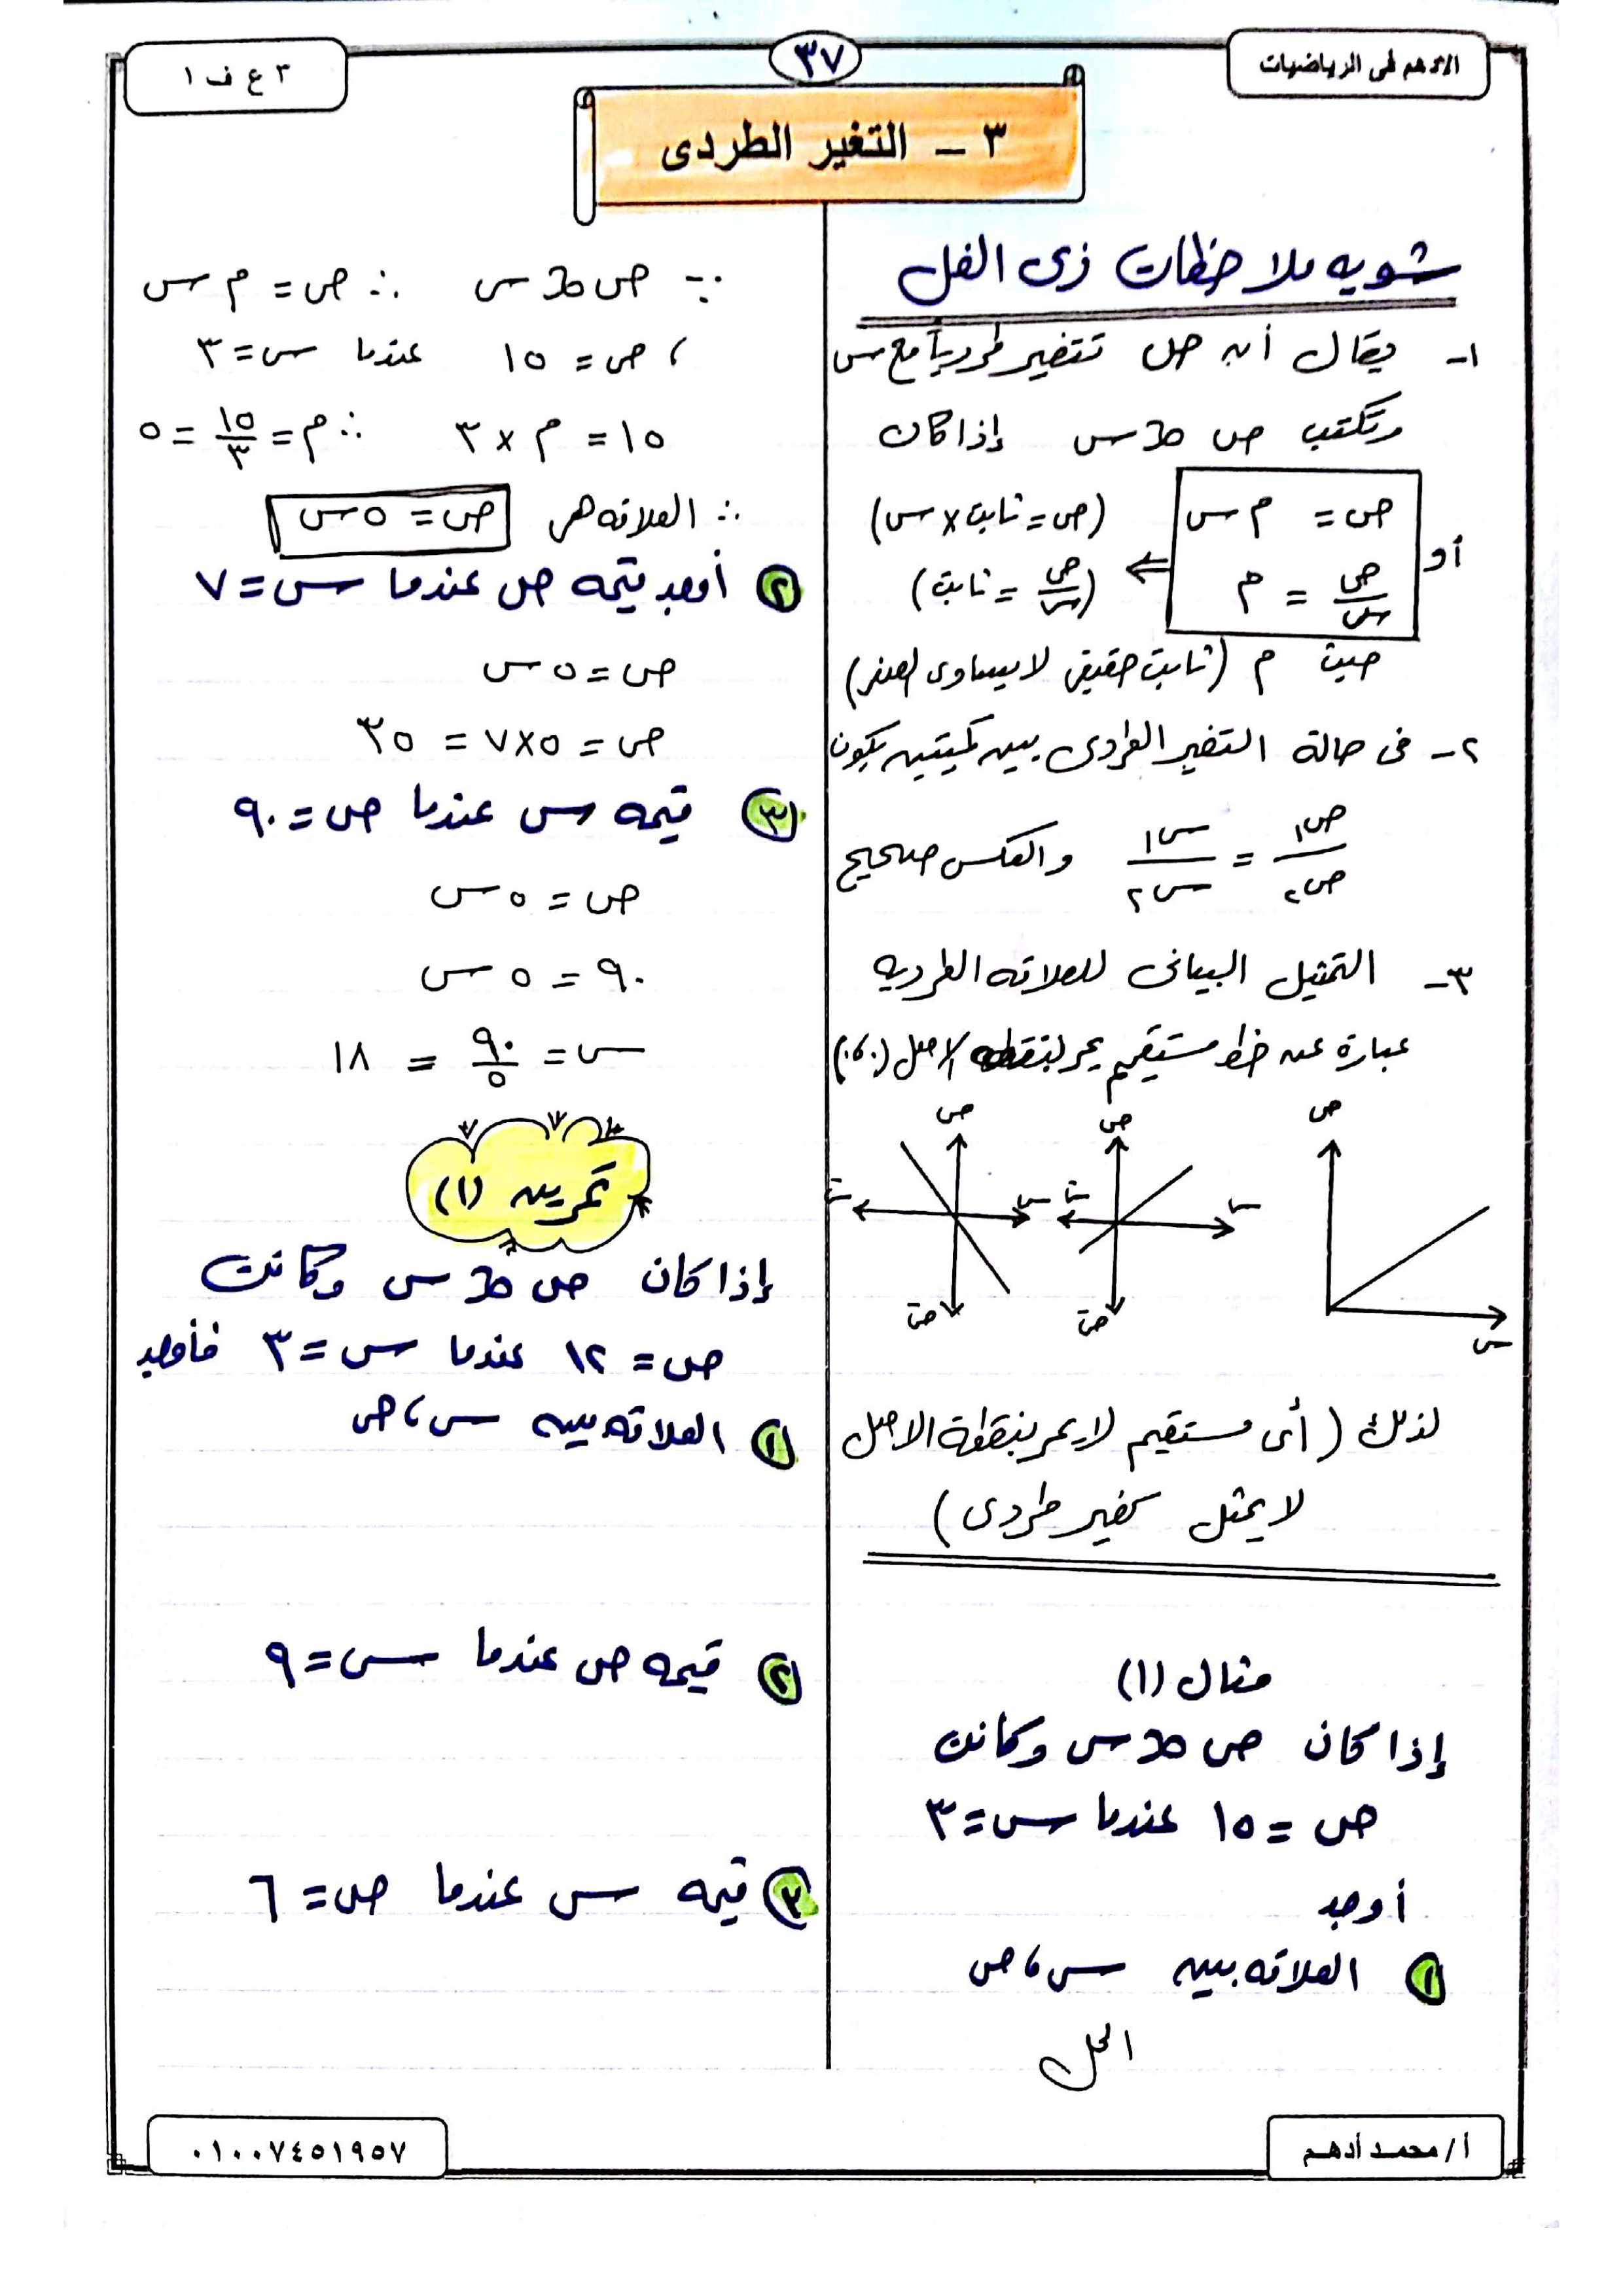 الادهم فى الرياضيات
٣٧
٣ ع ف ١
٣ – التغير الطردى
شويه ملاحظات زى الفل
١- يقال أن ص تتغير طردياً مع س
وتكتب ص ∝ س إذا كان
ص = م س (ص = ثابت × س)
أو
ص/س = م ⇐ (ص/س = ثابت)
حيث م (ثابت حقيقى لا يساوى الصفر)
٢- فى حالة التغير الطردى بين كميتين يكون
ص١/ص٢ = س١/س٢ والعكس صحيح
٣- التمثيل البيانى للعلاقه الطرديه
عبارة عن خط مستقيم يمر بنقطه الاصل (٠،٠)
ص ص ص
س س سَ س سَ
صَ صَ
لذلك (أى مستقيم لا يمر بنقطة الاصل
لا يمثل تغير طردى)
مثال (١)
إذا كان ص ∝ س وكانت
ص = ١٥ عندما س = ٣
أوجد
١ العلاقه بين س ، ص
الحل
∵ ص ∝ س ∴ ص = م س
، ص = ١٥ عندما س = ٣
١٥ = م × ٣ ∴ م = ١٥/٣ = ٥
∴ العلاقه هى ص = ٥ س
٢ أوجد قيمه ص عندما س = ٧
ص = ٥ س
ص = ٥×٧ = ٣٥
٣ قيمه س عندما ص = ٩٠
ص = ٥ س
٩٠ = ٥ س
س = ٩٠/٥ = ١٨
تمرين (١)
إذا كان ص ∝ س وكانت
ص = ١٢ عندما س = ٣ فأوجد
١ العلاقه بين س ، ص
٢ قيمه ص عندما س = ٩
٣ قيمه س عندما ص = ٦
أ / محمد أدهم
٠١٠٠٧٤٥١٩٥٧